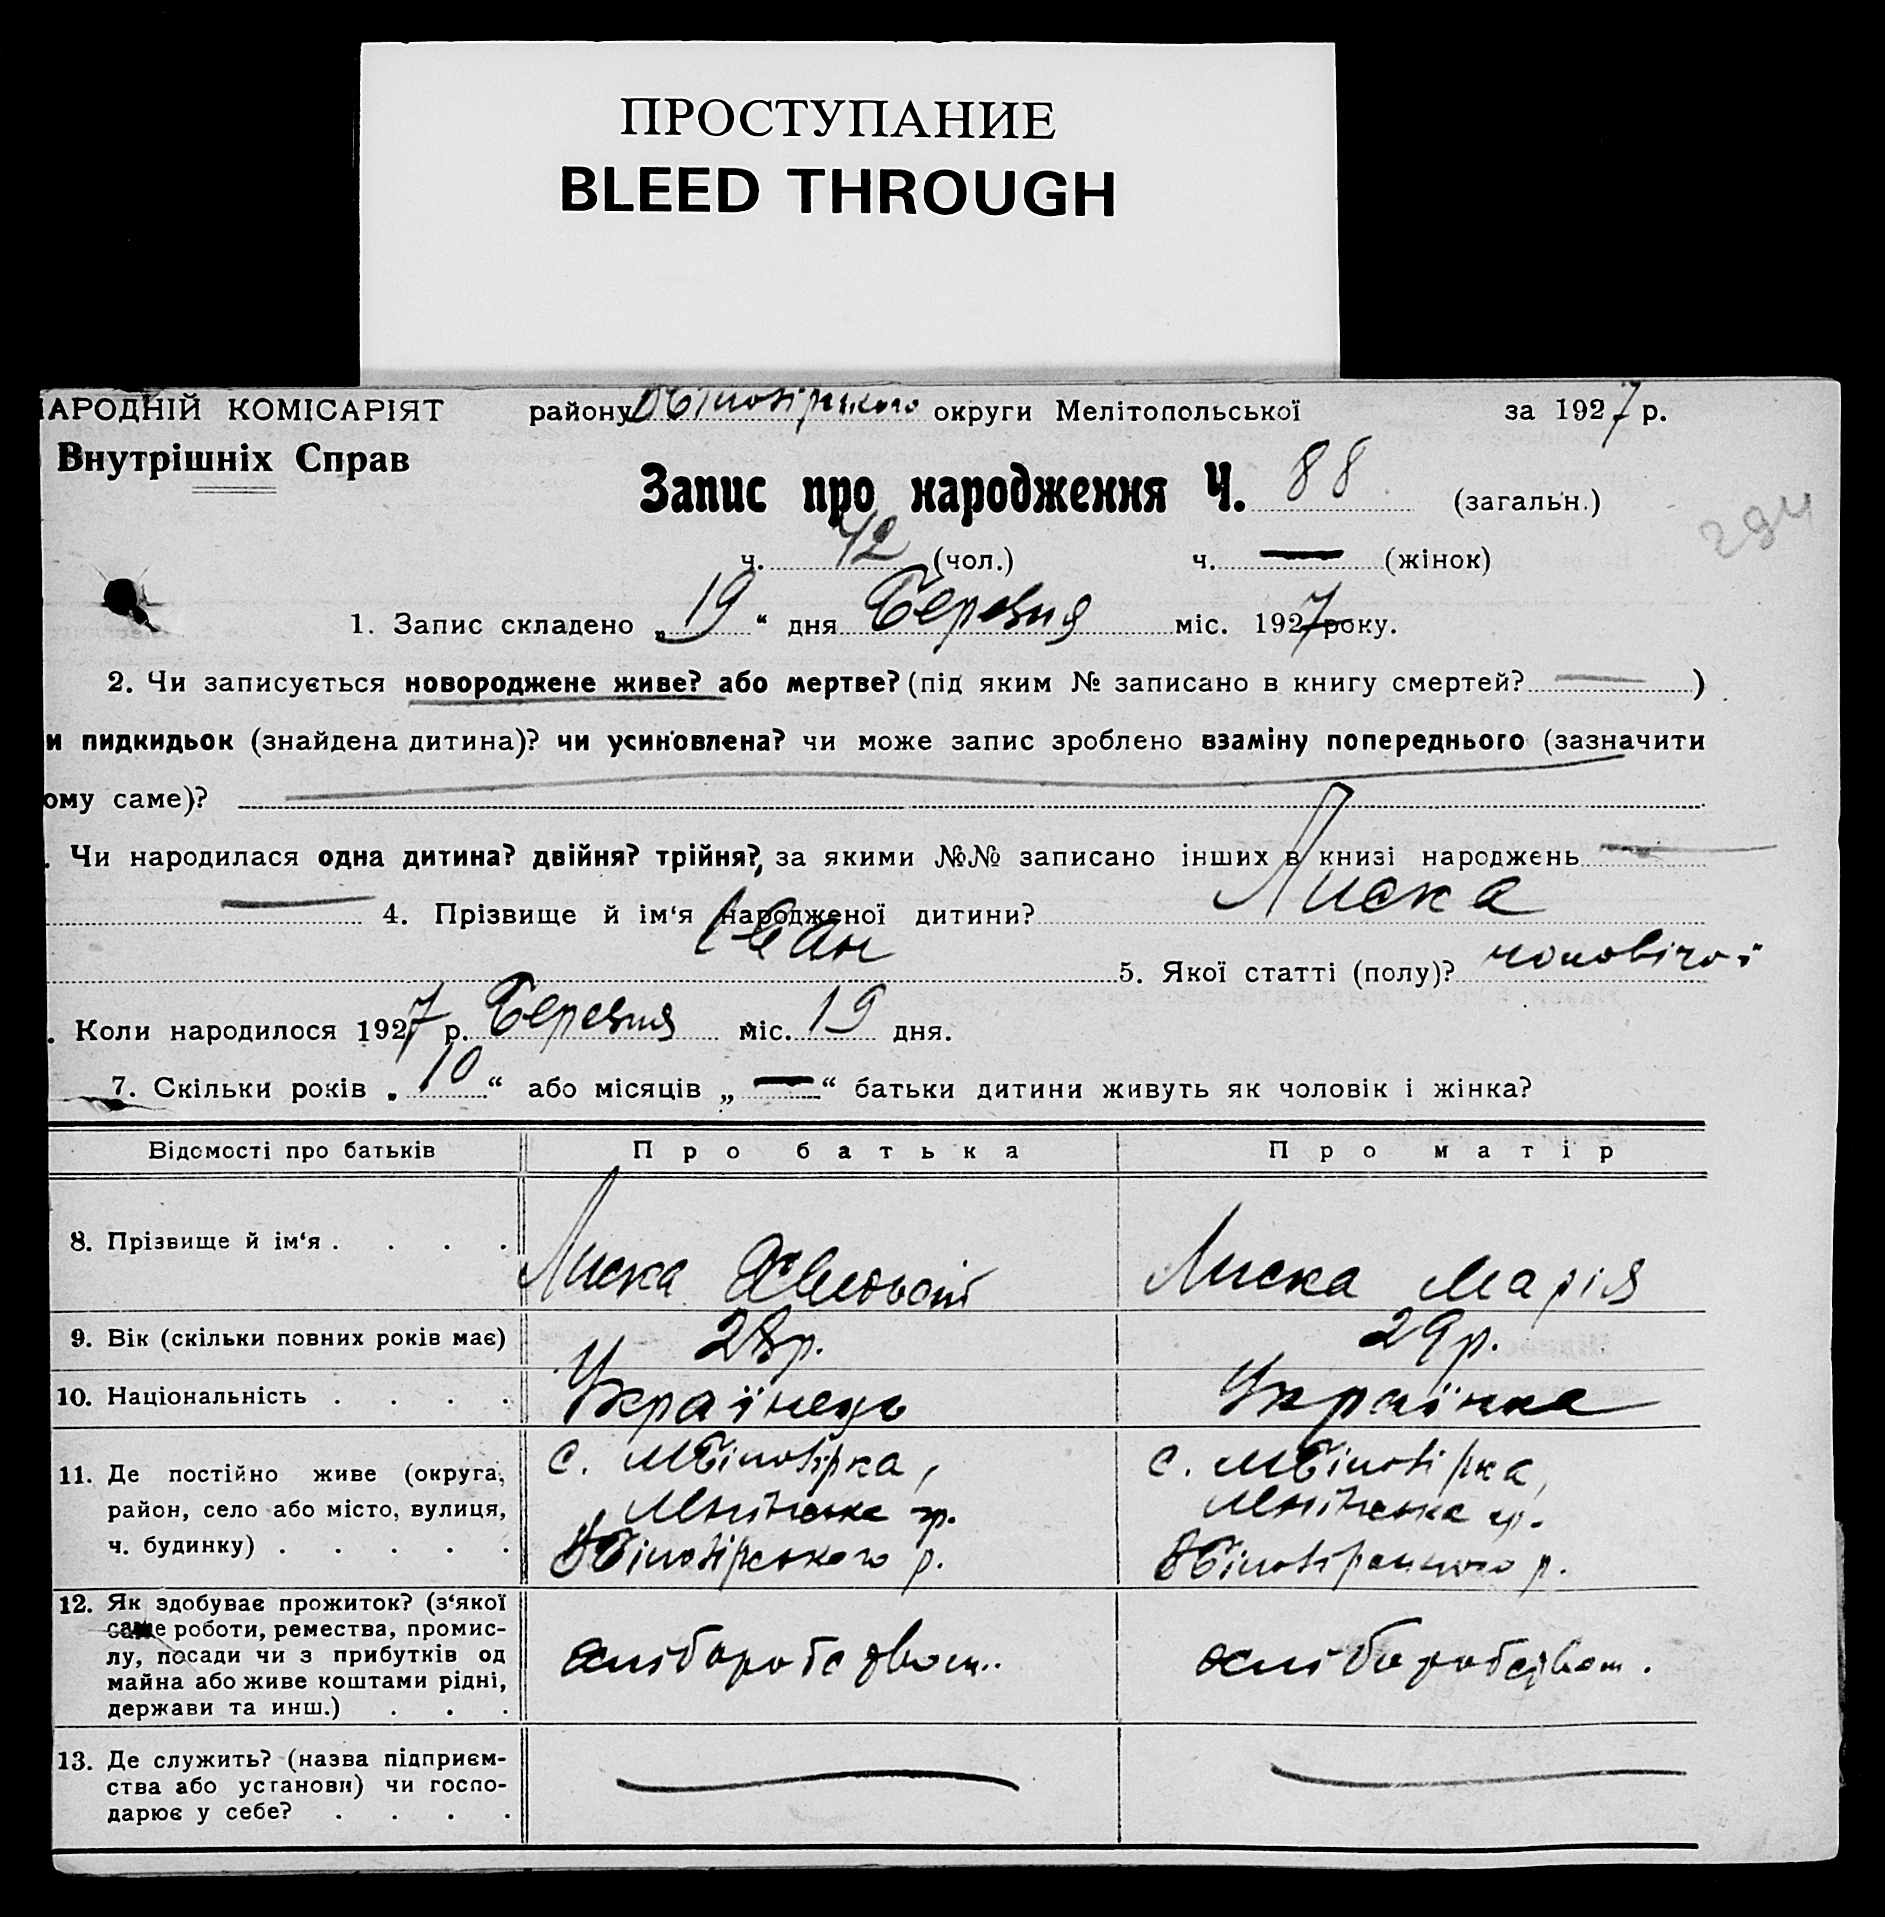 ПРОСТУПАНИЕ
BLEED THROUGH
АРОДНІЙ КОМІСАРІЯТ району округи Мелітопольської за 1927 р.
Внутрішніх Справ
Запис про народження Ч. 88 (загальн.)
294
ч. 42 (чол.) ч. — (жінок)
1. Запис складено „19“ дня Березня міс. 1927 року.
2. Чи записується новороджене живе? або мертве? (під яким № записано в книгу смертей? — )
и пидкидьок (знайдена дитина)? чи усиновлена? чи може запис зроблено взаміну попереднього (зазначити
ому саме)?
. Чи народилася одна дитина? двійня? трійня?, за якими №№ записано інших в книзі народжень —
— 4. Прізвище й ім‘я народженої дитини? Лиска
Іван 5. Якої статті (полу)? чоловічої
. Коли народилося 1927 р. Березня міс. 19 дня.
7. Скільки років „10“ або місяців „—“ батьки дитини живуть як чоловік і жінка?
Відомості про батьків Про батька Про матір
8. Прізвище й ім‘я . . . . Лиска Лиска Марія
9. Вік (скільки повних років має) 28 р. 29 р.
10. Національність . . . . Українець Українка
11. Де постійно живе (округа, с. с.
район, село або місто, вулиця,
ч. будинку) . . . . . р. р.
12. Як здобуває прожиток? (з‘якої
саме роботи, ремества, промис-
лу, посади чи з прибутків од хліборобством. хліборобством.
майна або живе коштами рідні,
держави та инш.) . . .
13. Де служить? (назва підприєм-
ства або установи) чи госпо- — —
дарює у себе? . . . .